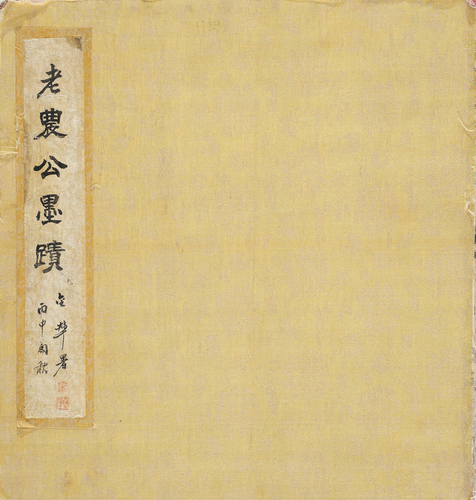 老農公墨蹟
丙申閏秋